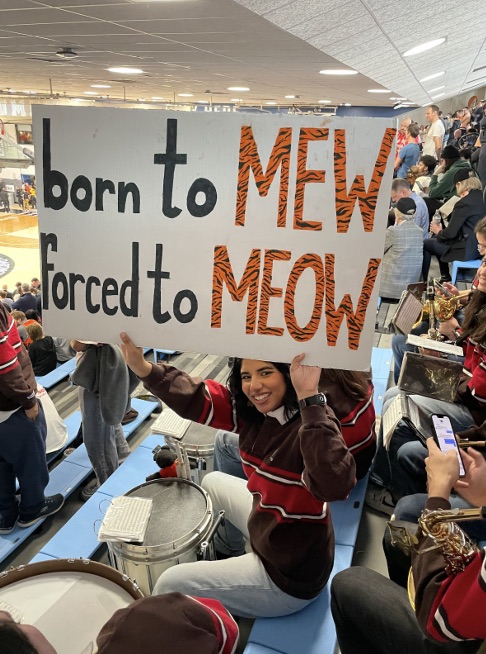 born to MEW
forced to MEOW